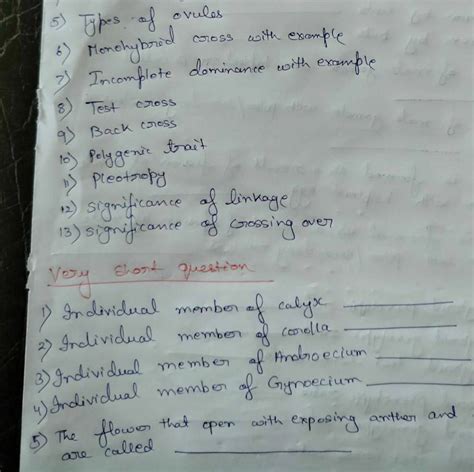 5) Types of ovules
6) Monohybrid cross with example
7) Incomplete dominance with example
8) Test cross
9) Back cross
10) Polygenic trait
11) Pleotropy
12) Significance of linkage
13) significance of crossing over
Very short question
1) Individual member of calyx
2) Individual member of corolla
3) Individual member of Androecium
4) Individual member of Gynoecium
5) The flower that open with exposing anther and
are called